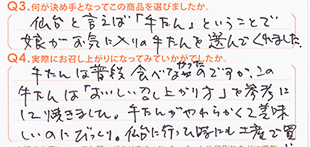 Q3.何が決め手となってこの商品を選びましたか。
仙台と言えば「牛たん」ということで
娘がお気に入りの牛たんを送んでくれました。
Q4.実際にお召し上がりになってみていかがでしたか。
牛たんは普段食べなかったのですが、この
牛たんは「おいしい召し上がり方」を参考に
して焼きました。牛たんがやわらかくて美味
しいのにびっくり。仙台に行った時にもお土産で買